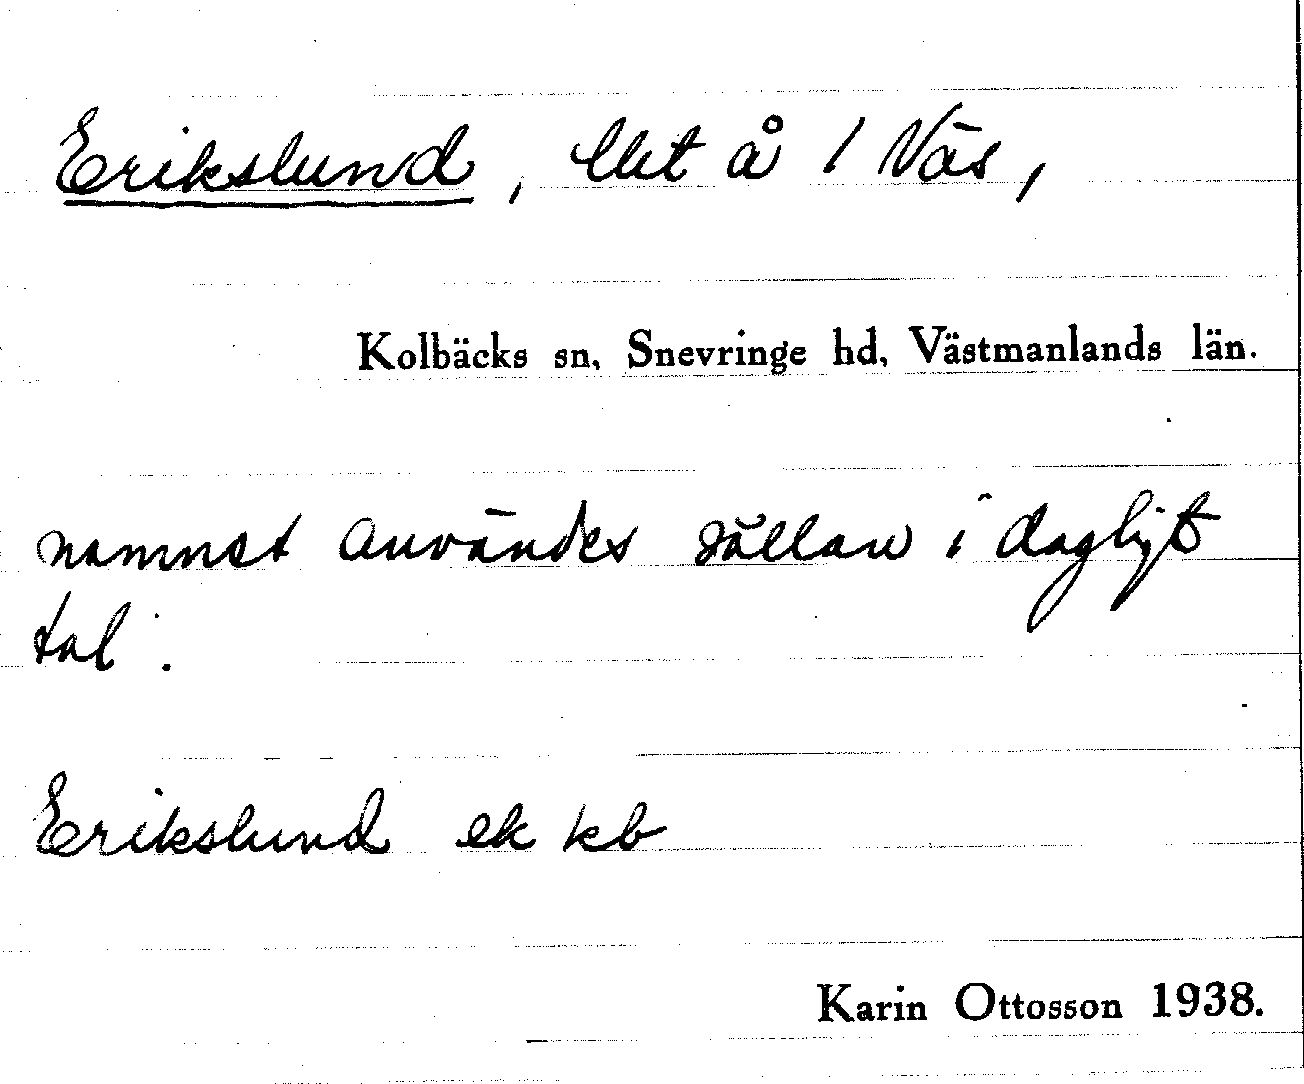 Erikslund, lht å 1 Näs,
Kolbäcks sn, Snevringe hd, Västmanlands län.
namnet användes sällan i dagligt
tal.
Erikslund ek kb
Karin Ottosson 1938.